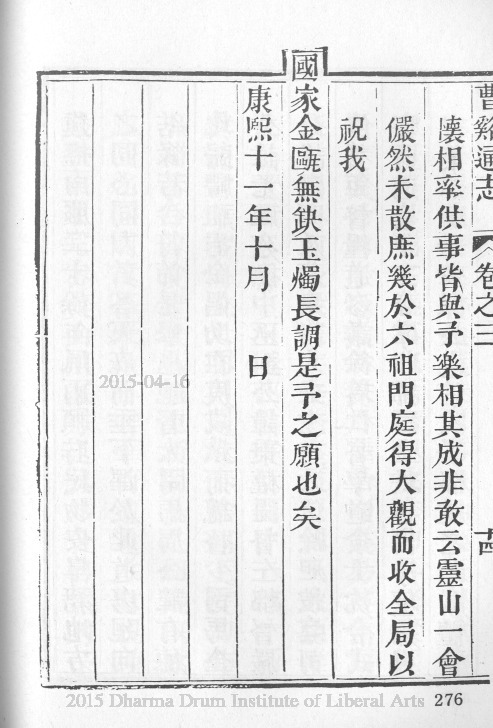 曹谿通志 卷之三 十四
懷相率供事皆與予樂相其成非敢云靈山 會
儼然未散庶幾於六祖門庭得大觀而收全局以
祝我
國家金甌無缺玉燭長調是予之願也矣
康熙十一年十月 日
2015-04-16
2015 Dharma Drum Institute of Liberal Arts 276